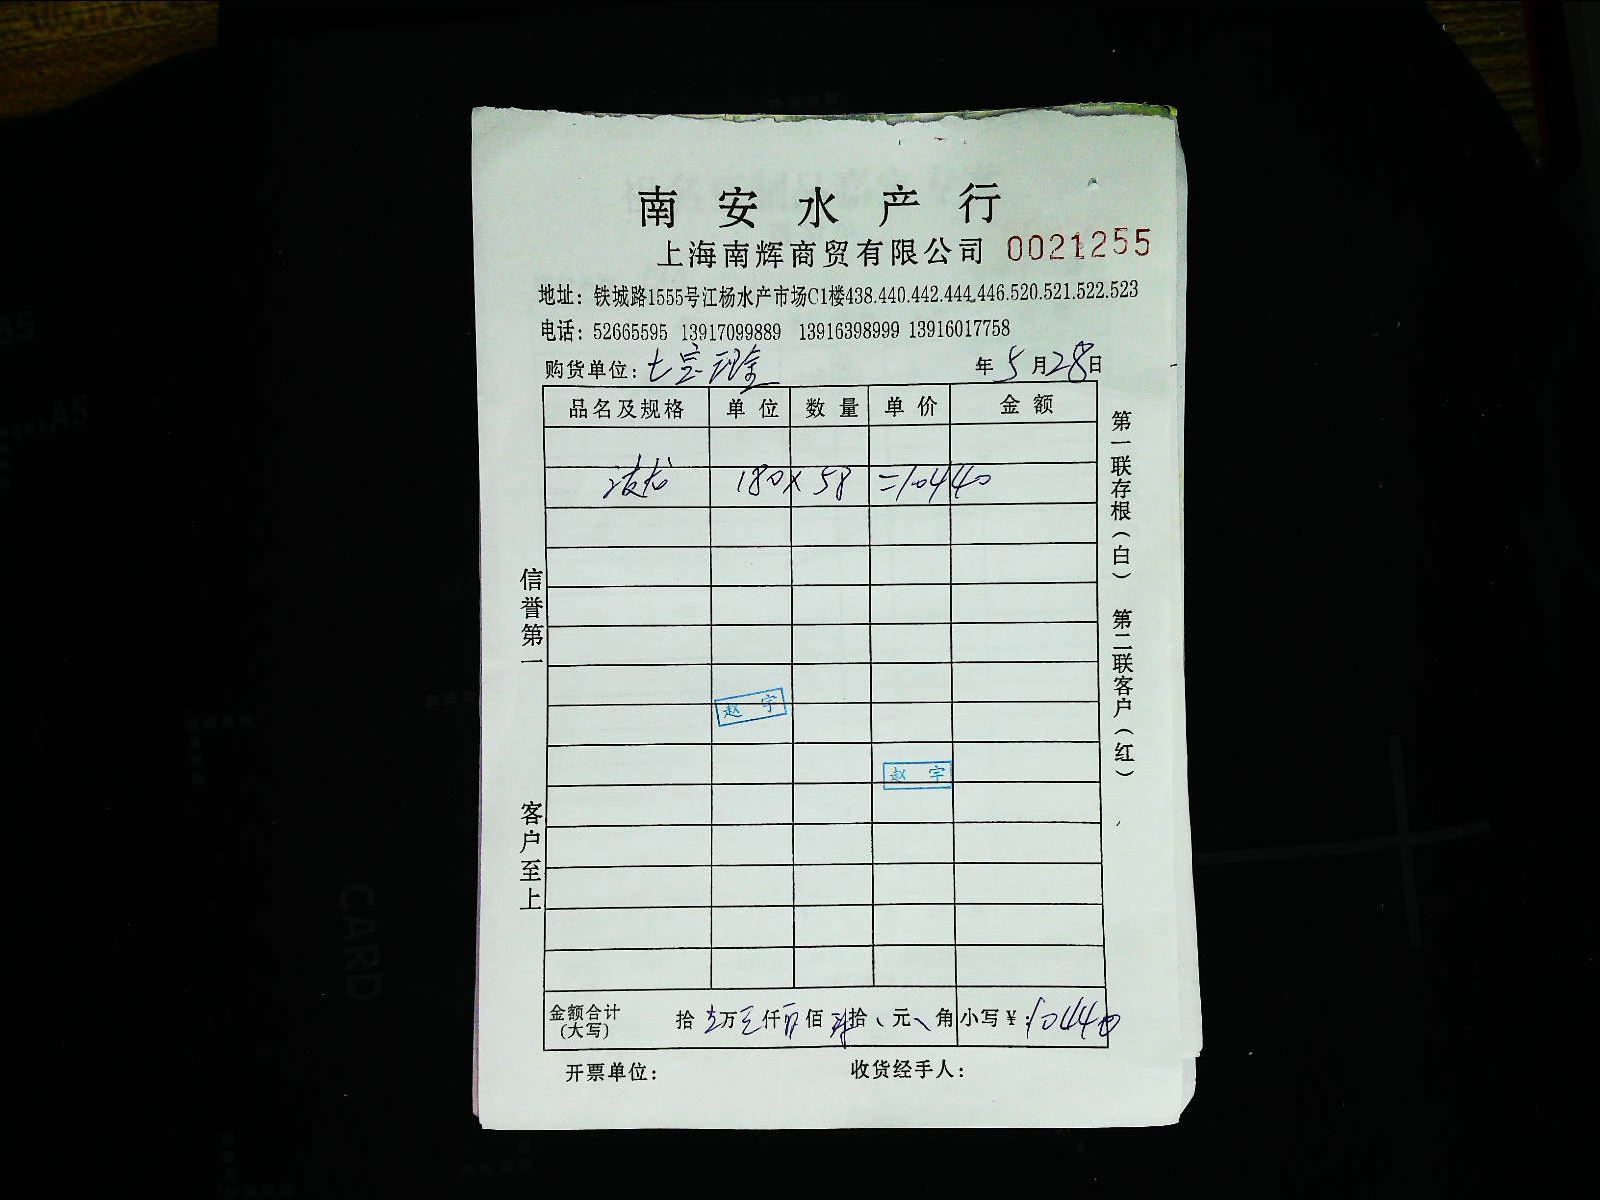 南安水产行
上海南辉商贸有限公司 0021255
地址：铁城路1555号江杨水产市场C1楼438.440.442.444.446.520.521.522.523
电话：52665595 13917099889 13916398999 13916017758
购货单位：七宝现金 年5月28日
品名及规格 单位 数量 单价 金额
波龙 180×58=10440
赵宇
赵宇
金额合计(大写) 拾壹万 仟 佰肆拾、元、角 小写￥：10440
开票单位： 收货经手人：
信誉第一
客户至上
第一联存根（白）
第二联客户（红）
CARD
A5
B5